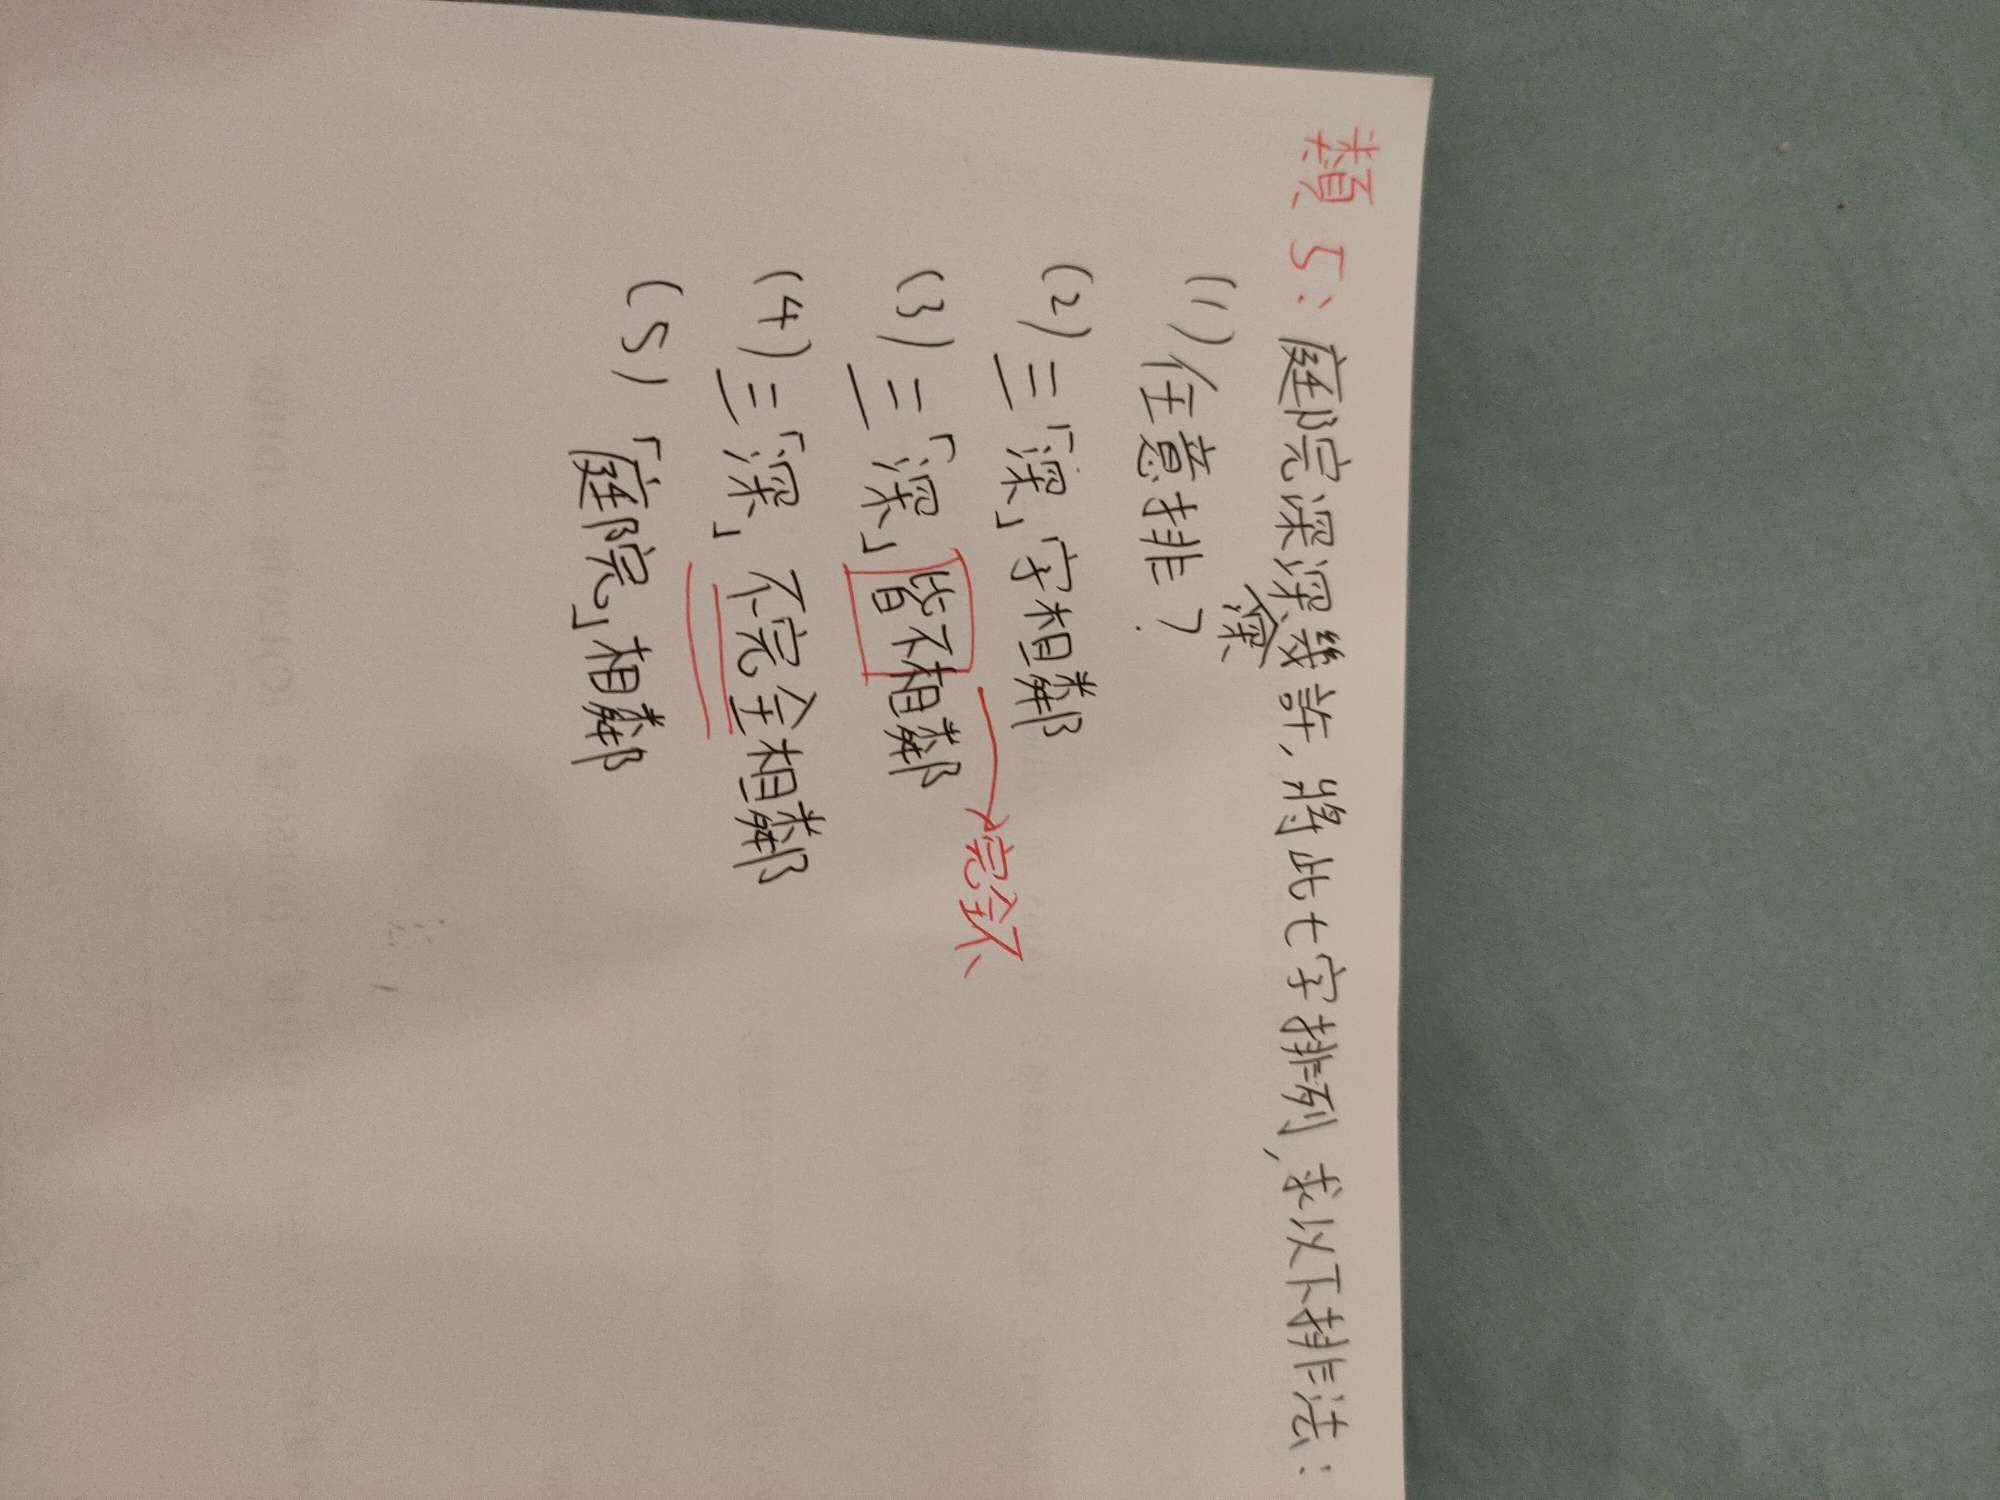 類5：庭院深深深幾許，將此七字排列，求以下排法：
(1) 任意排？
(2) 三「深」字相鄰
(3) 三「深」皆不相鄰 → 完全不
(4) 三「深」不完全相鄰
(5) 「庭院」相鄰